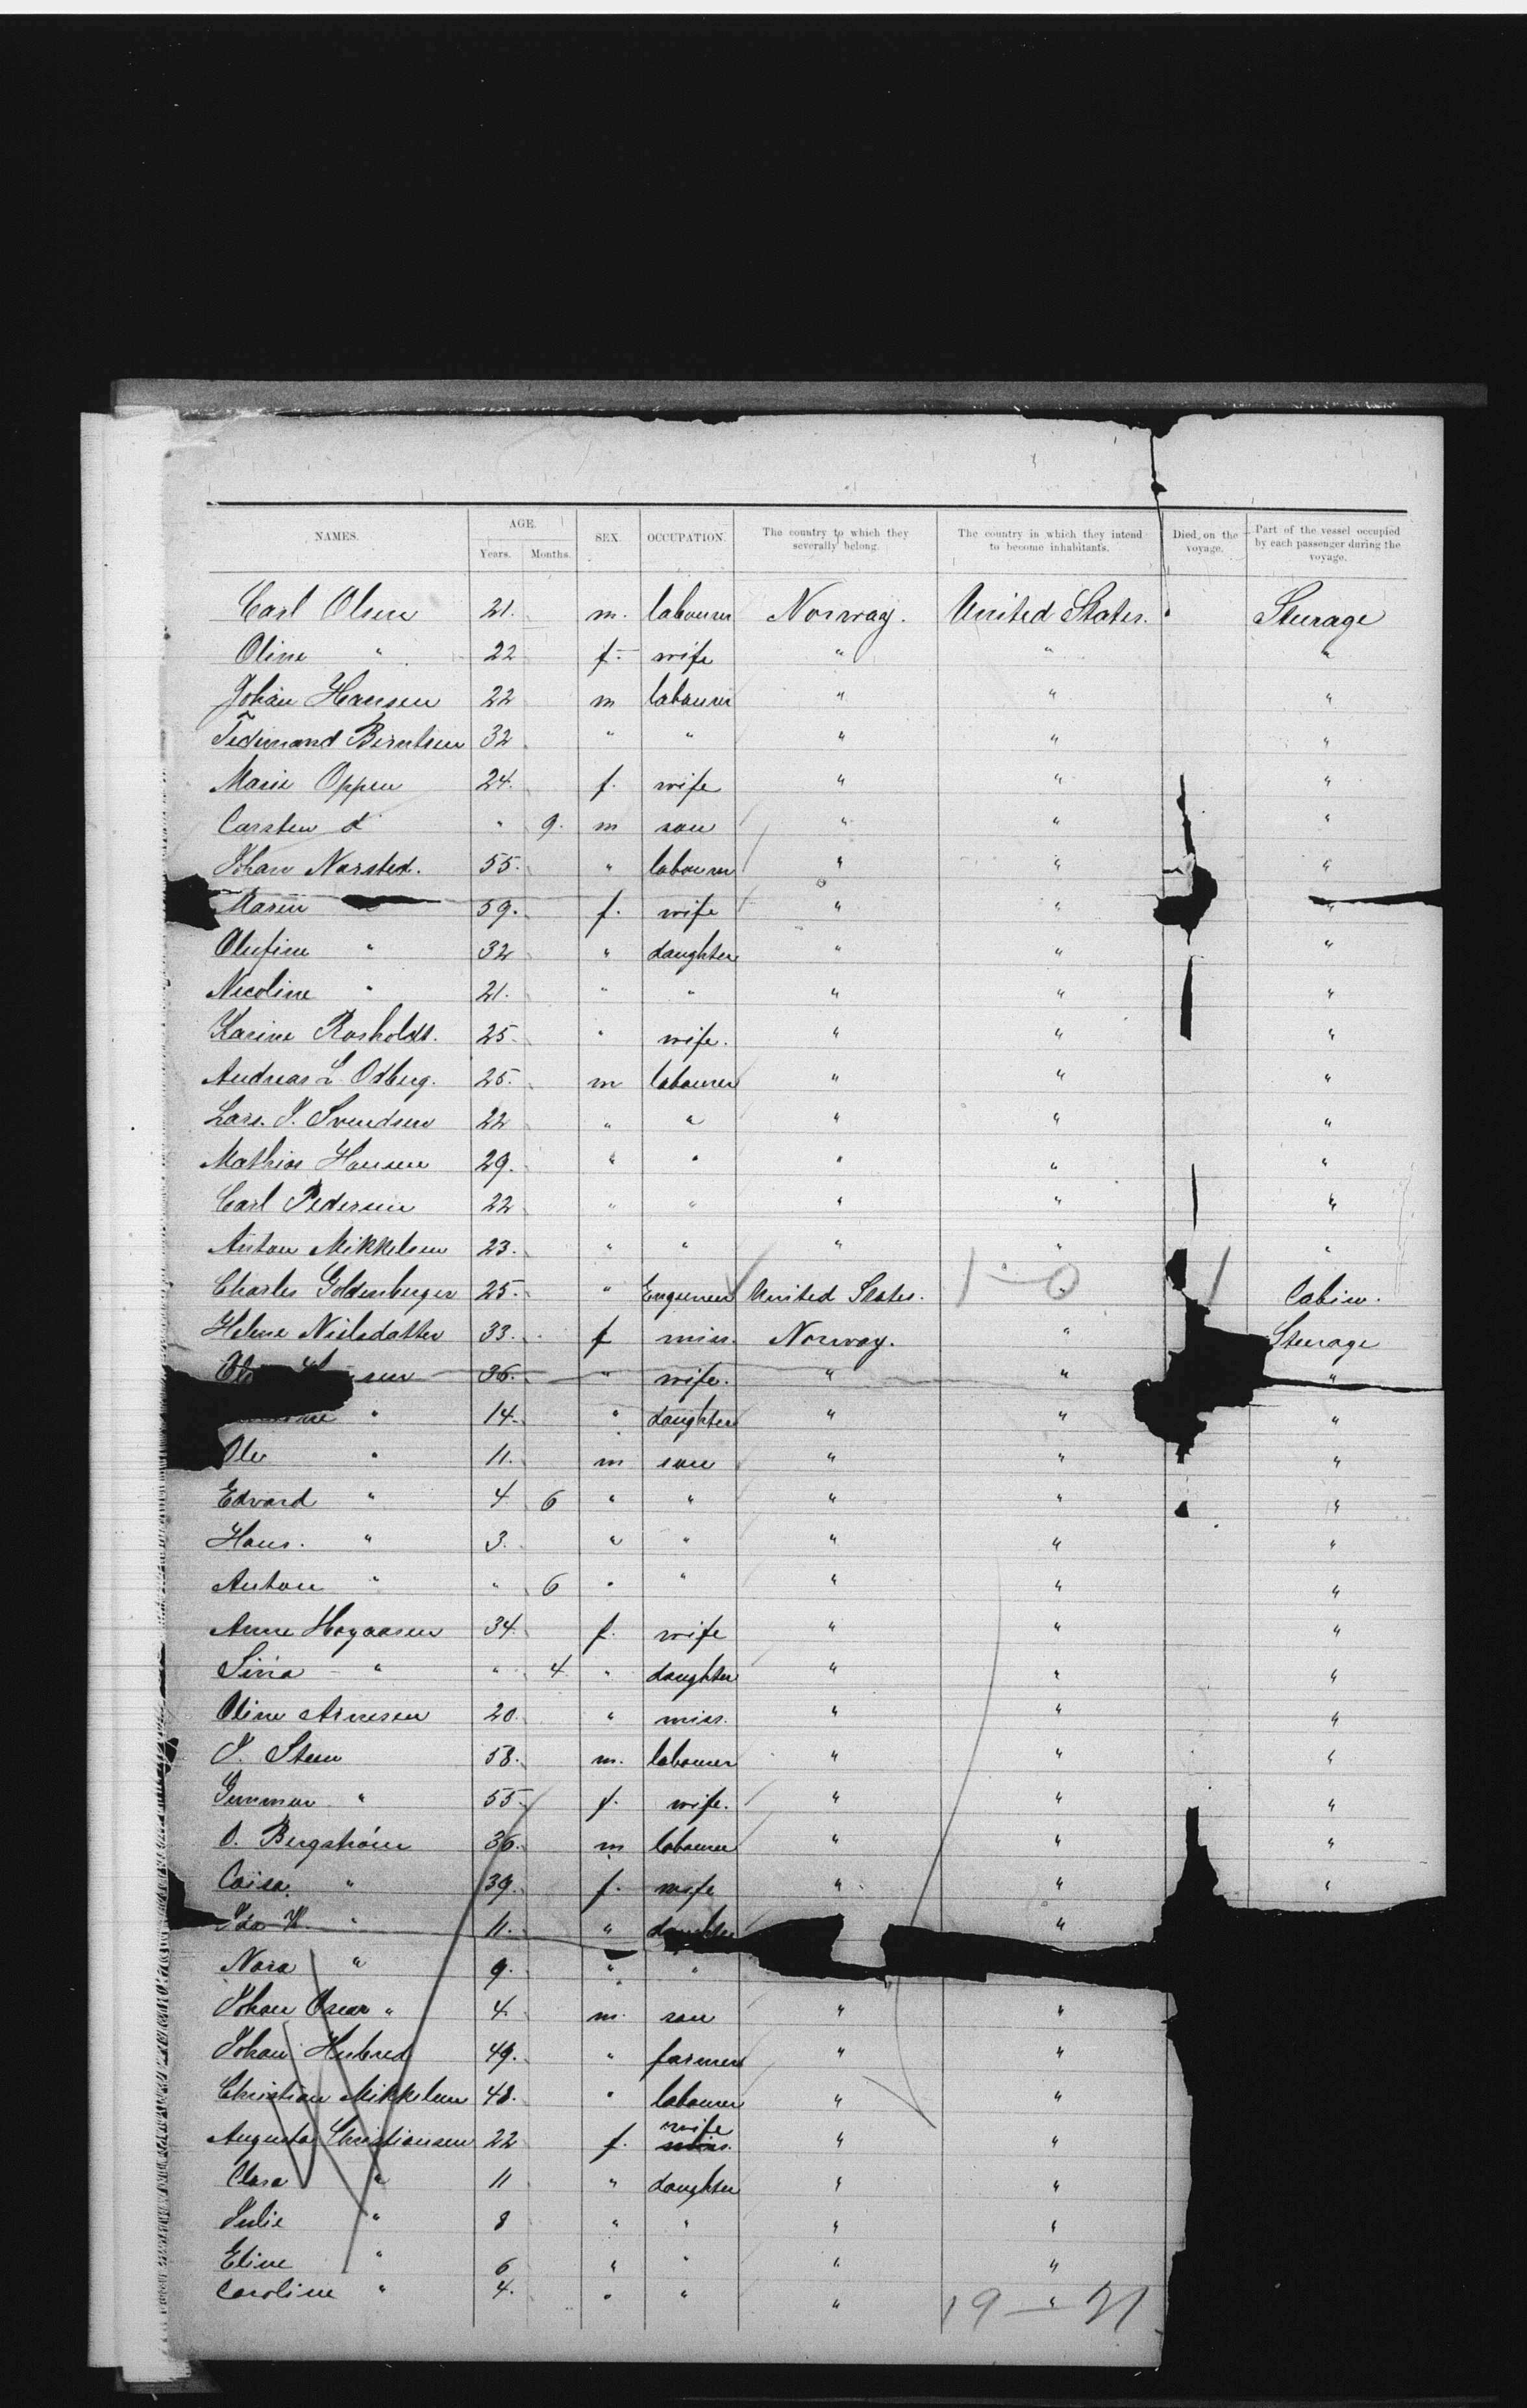 NAMES. AGE. SEX. OCCUPATION. The country to which they severally belong. The country in which they intend to become inhabitants. Died on the voyage. Part of the vessel occupied by each passenger during the voyage.
Years. Months.
Carl Olsen 21. m. labourer Norway. United States. Steerage
Oline " 22 f. wife " " "
Johan Hansen 22 m labourer " " "
Ferdinand Berntsen 32 " " " " "
Marie Oppen 24. f. wife " " "
Carsten d " 9. m son " " "
Johan Narsted. 55. " labourer " " "
Maren " 59. f. wife " " "
Olufine " 32 " daughter " " "
Nicoline " 21. " " " " "
Karine Rosholdt. 25. " wife. " " "
Andreas L. Odberg. 25. m labourer " " "
Lars. J. Svendsen 22 " " " " "
Mathias Hansen 29. " " " " "
Carl Pedersen 22 " " " " "
Anton Mikkelsen 23. " " " " "
Charles Goldenberger 25. " Engineer United States. 1 - 0 " 1 Cabin.
Helene Nielsdatter 33. f miss. Norway. " Steerage
sen 36. " wife. " " "
ine " 14. " daughter " " "
Ole " 11. m son " " "
Edvard " 4 6 " " " " "
Hans. " 3. " " " " "
Anton " " 6 " " " " "
Anne Hogaasen 34. f. wife " " "
Sina " " 4 " daughter " " "
Oline Arnesen 20. " miss. " " "
J. Steen 58. m. labourer " " "
Gunmar " 55. f. wife. " " "
O. Bergström 36. m labourer " " "
Caisa " 39. f. wife " " "
Ida K. " 11. " daughter "
Nora " 9. " "
Johan Oscar " 4. m. son " "
Johan Hubred 49. " farmer " "
Christian Mikkelsen 48. " labourer " "
Augusta Christiansen 22 f. wife miss. " "
Clara " 11 " daughter " "
Julie " 8 " " " "
Eline " 6 " " " "
Caroline " 4. " " " "
19 - 21